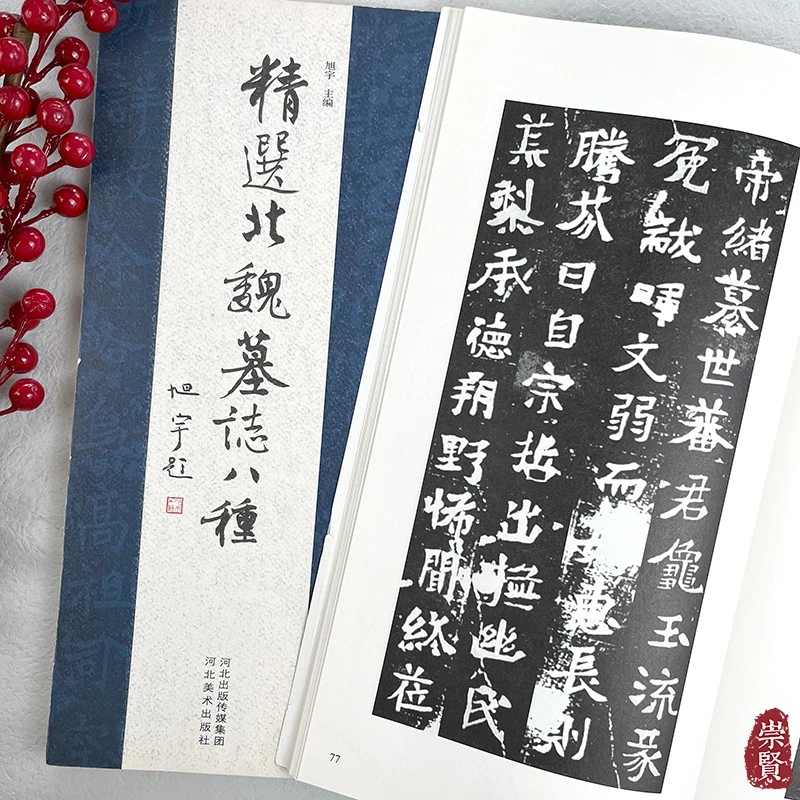 旭宇 主编
精選北魏墓誌八種
旭宇题
河北出版传媒集团
河北美术出版社
帝緒世蕃君龜玉流
冕誠暉文弱而惠長則
騰芬日自宗哲出幽民
梨承德朔野悕聞終莅
77
崇賢